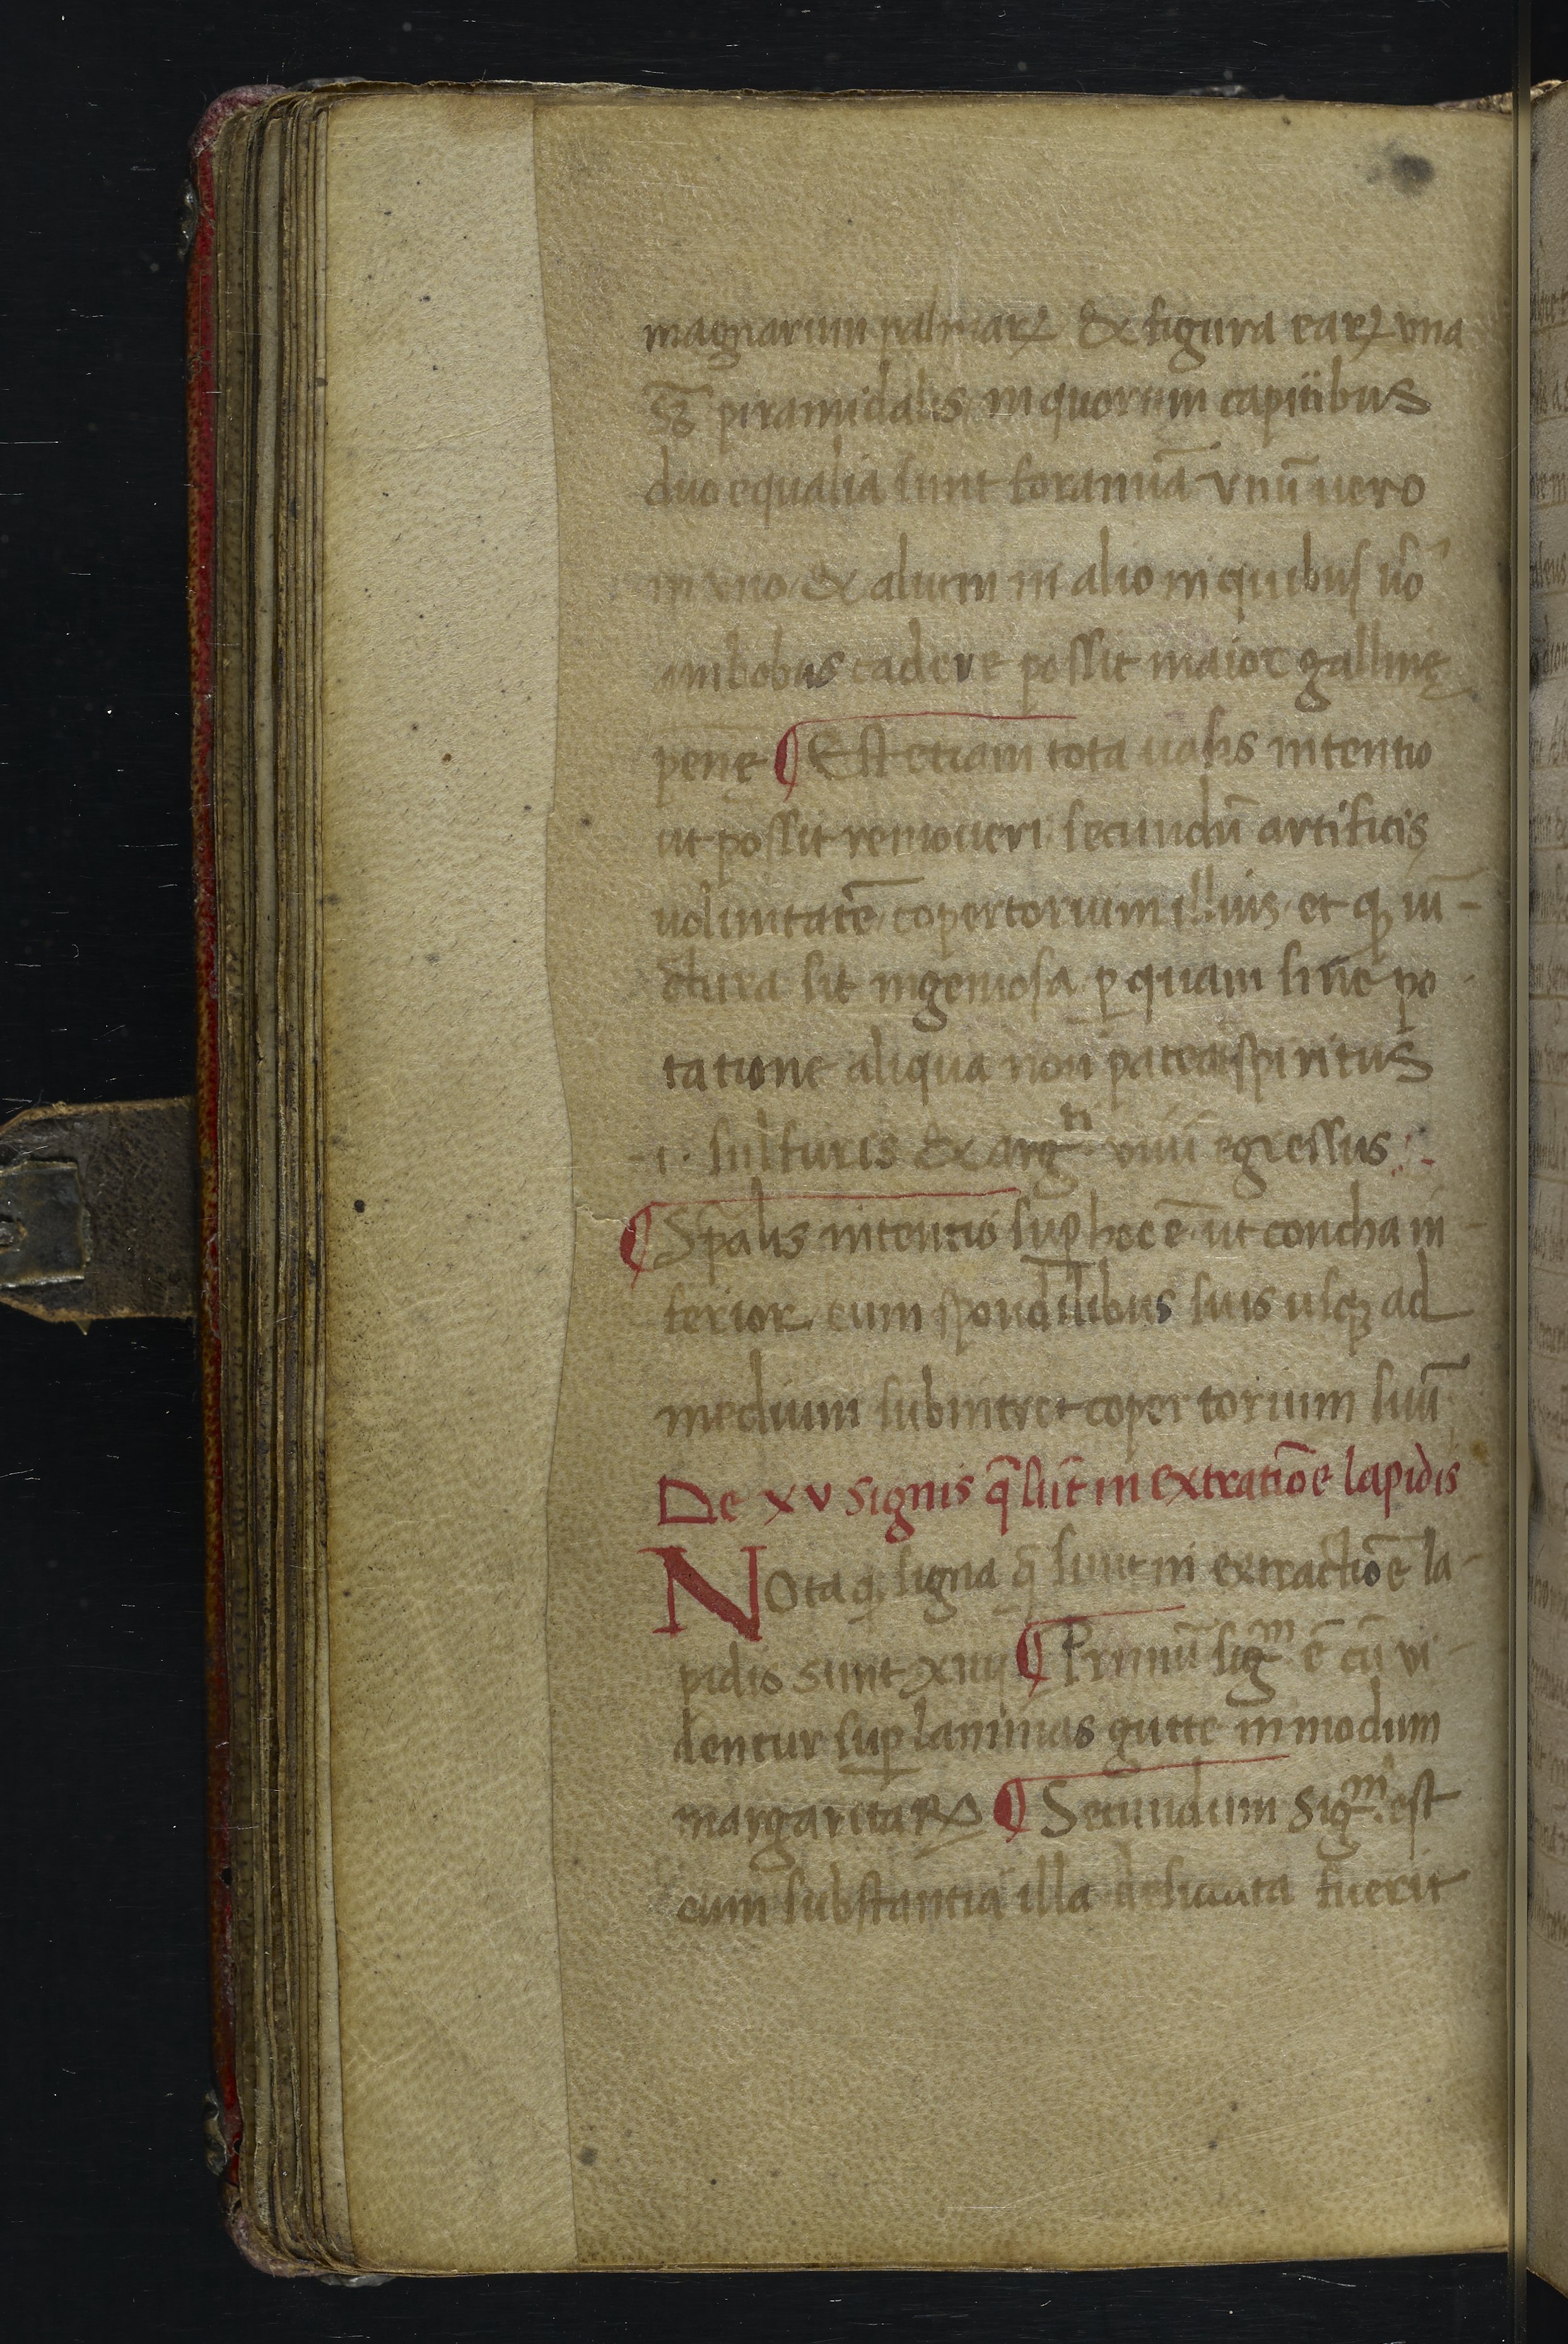 magnarum palmaꝝ & figura eaꝝ vna
sꝫ piramidalis in quorum capitibus
duo equalia sunt foramīa vnū uero
in vno & alium in alio in quibus ūo
ambobus cadere possit maior gallinę
pennę ¶ Est etiam tota uasis intentio
ut possit remoueri secundū artificis
uoluntatē copertorium illius et qꝫ iū-
ctura sit ingeniosa ꝑ quam sine po-
tatione aliqua non pateat spiritus
.i. sulfuris & argᵗⁱ viui egressus
¶ Spālis intentio suꝑ hoc ē ut concha in-
ferior cum spondilibus suis usqꝫ ad
medium subintret copertorium suū
De xv signis q̄ sūt in extratiōe lapidis
Nota qꝫ signa q̄ sunt in extractiōe la-
pidis sunt xiiij ¶ Primū sigᵐ ē cū vi-
dentur suꝑ laminas gutte in modum
margaritaꝝ ¶ Secundum sigᵐ est
cum substantia illa fuerit